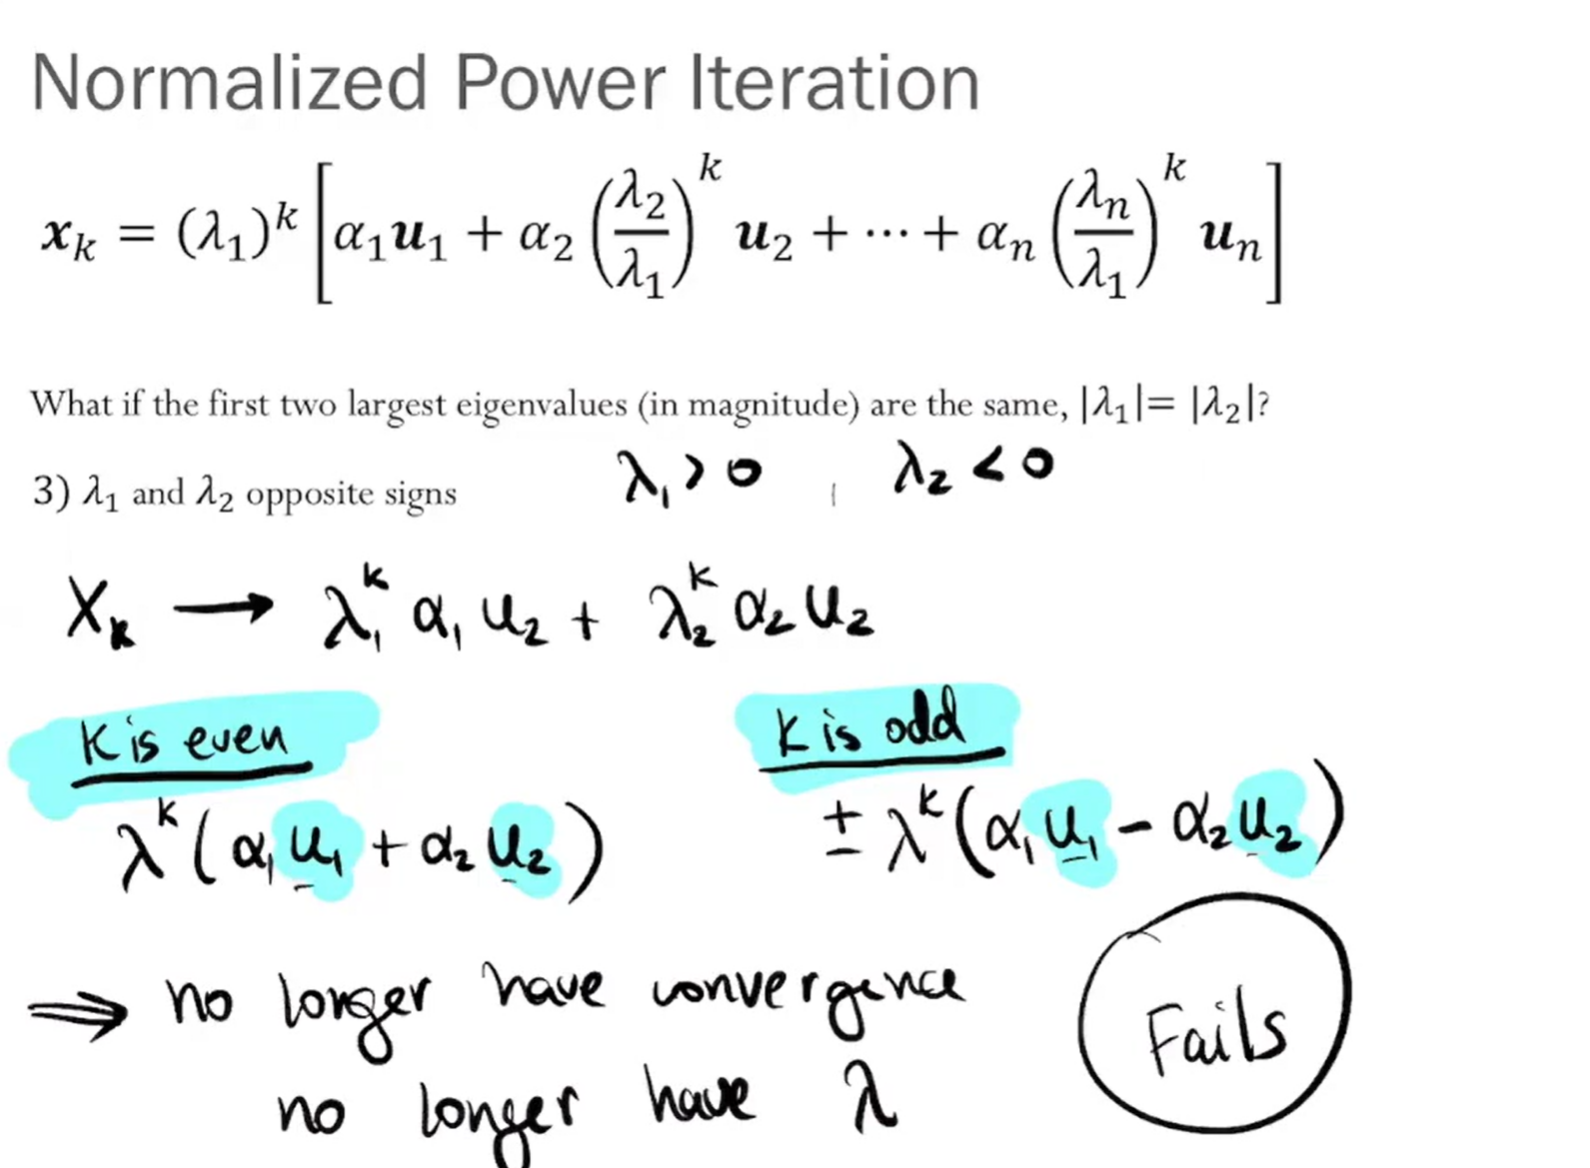 Normalized Power Iteration
𝒙ₖ = (λ₁)ᵏ [α₁𝒖₁ + α₂ (λ₂/λ₁)ᵏ 𝒖₂ + ⋯ + αₙ (λₙ/λ₁)ᵏ 𝒖ₙ]
What if the first two largest eigenvalues (in magnitude) are the same, |λ₁|= |λ₂|?
3) λ₁ and λ₂ opposite signs λ₁ > 0 , λ₂ < 0
Xₖ → λ₁ᵏ α₁ u₂ + λ₂ᵏ α₂ u₂
K is even K is odd
λᵏ(α₁ u₁ + α₂ u₂) ± λᵏ(α₁ u₁ - α₂ u₂)
⇒ no longer have convergence
Fails
no longer have λ